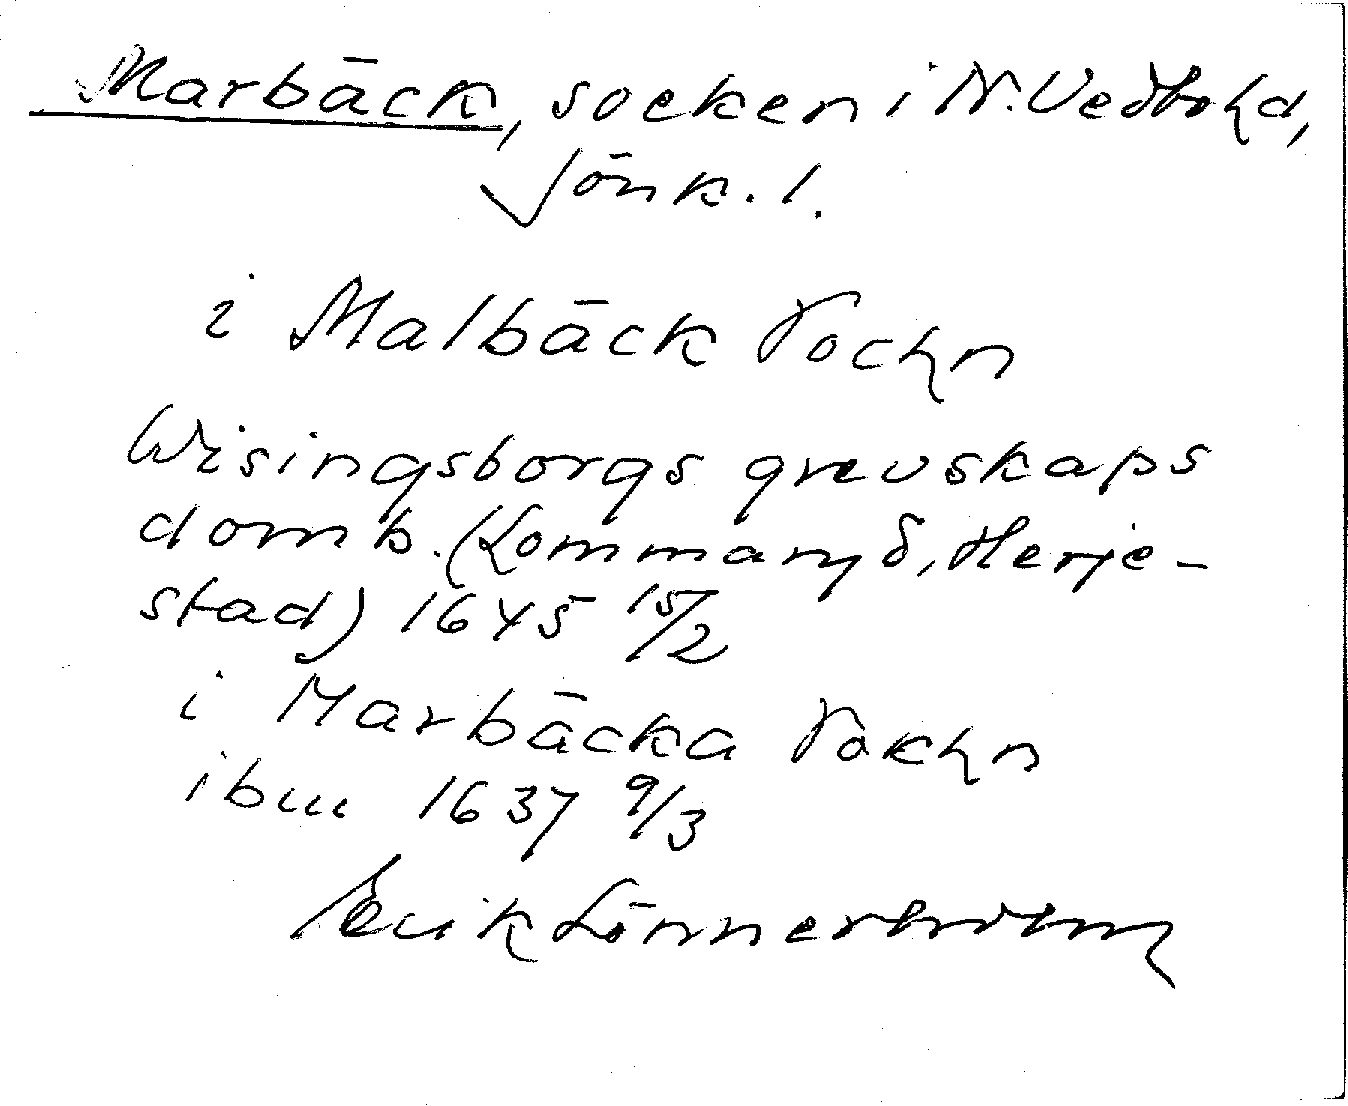 Marbäck, socken i N. Vedbo hd,
Jönk. l.
i Malbäck Sochn
Wisingsborgs grevskaps
domb. (Lommaryd, Herje-
stad) 1645 15/2
i Marbäcka Sokhn
ibm 1637 9/3
Erik Lönnerholm